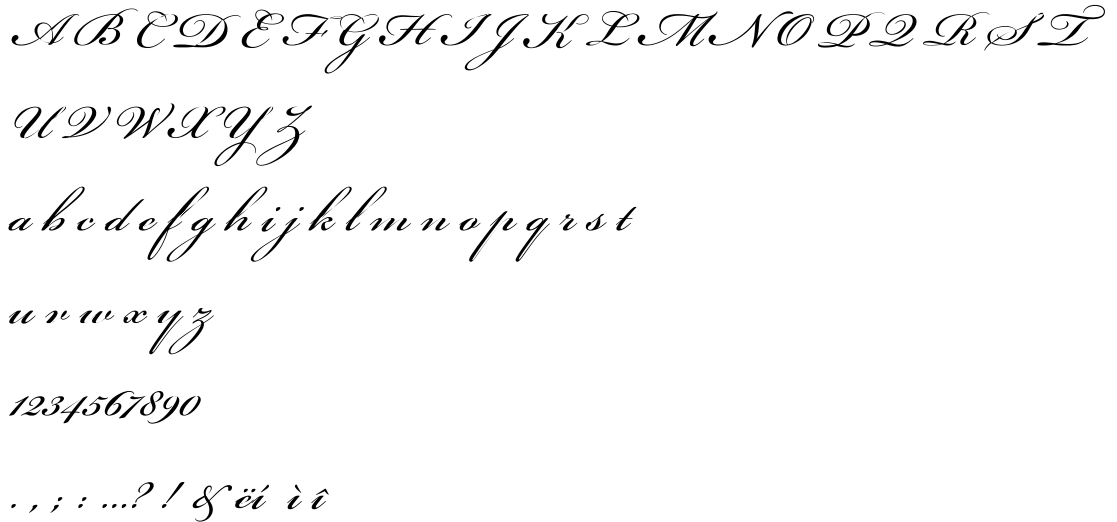 A B C D E F G H I J K L M N O P Q R S T
U V W X Y Z
a b c d e f g h i j k l m n o p q r s t
u v w x y z
1234567890
. , ; : ...? ! & ëí ì î